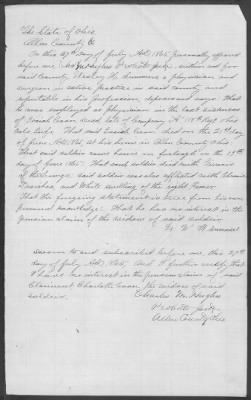 The State of Ohio
Allen County SS
On this 27th day of July A.D. 1865 personally appeared
before me Probate Judge within and for
said County Wesley H. a physician and
surgeon in active practice in said county and
reputable in his profession, deposes and says that
he was employed as physician in the last sickness
of Josiah Coon Decd late of Company A 118th Regt Ohio
Vols Infty. That said Josiah Coon died on the 21st day
of June A.D. 1865 at his home in Allen County Ohio
That said soldier came home on furlough on the
day of June 1865. That said soldier died with
of the Lungs said soldier was also afflicted with Chronic
Diarrhea and White swelling of the right
That the foregoing statement is made from his own
personal knowledge. That he has no interest in the
pension claim of the widow of said soldier
W. H.
Sworn to and subscribed before me this 27th
day of July A.D. 1865, and I further certify that
I have no interest in the pension claim of said
Claimant Charlotte Coon the widow of said
soldier.
Charles M. Hughes
Probate Judge
Allen County Ohio